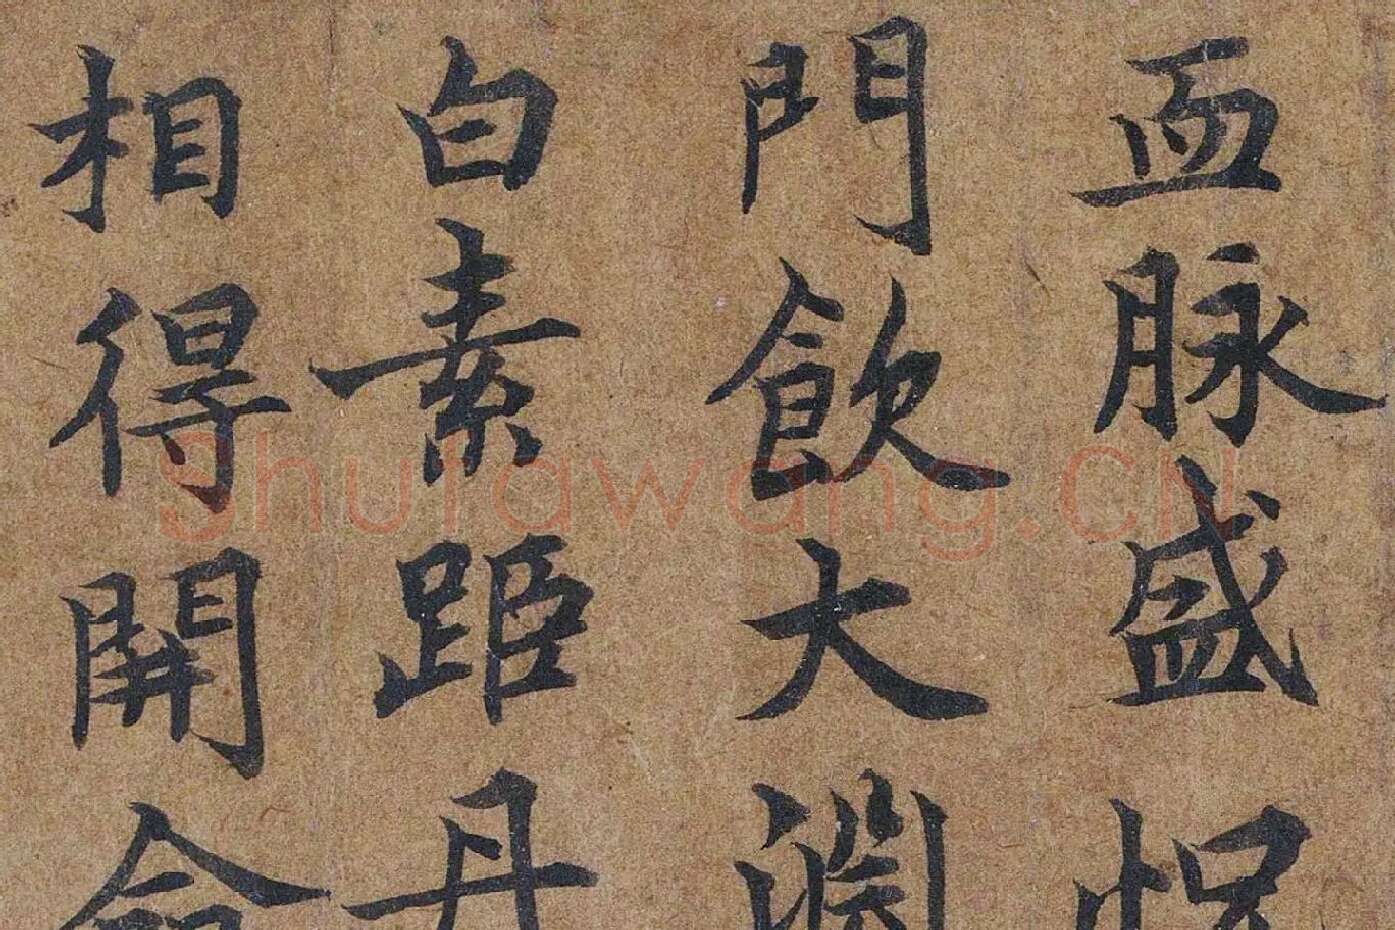 血脉盛
門飲大淵
白素距丹
相得開命
Shufawang.CN